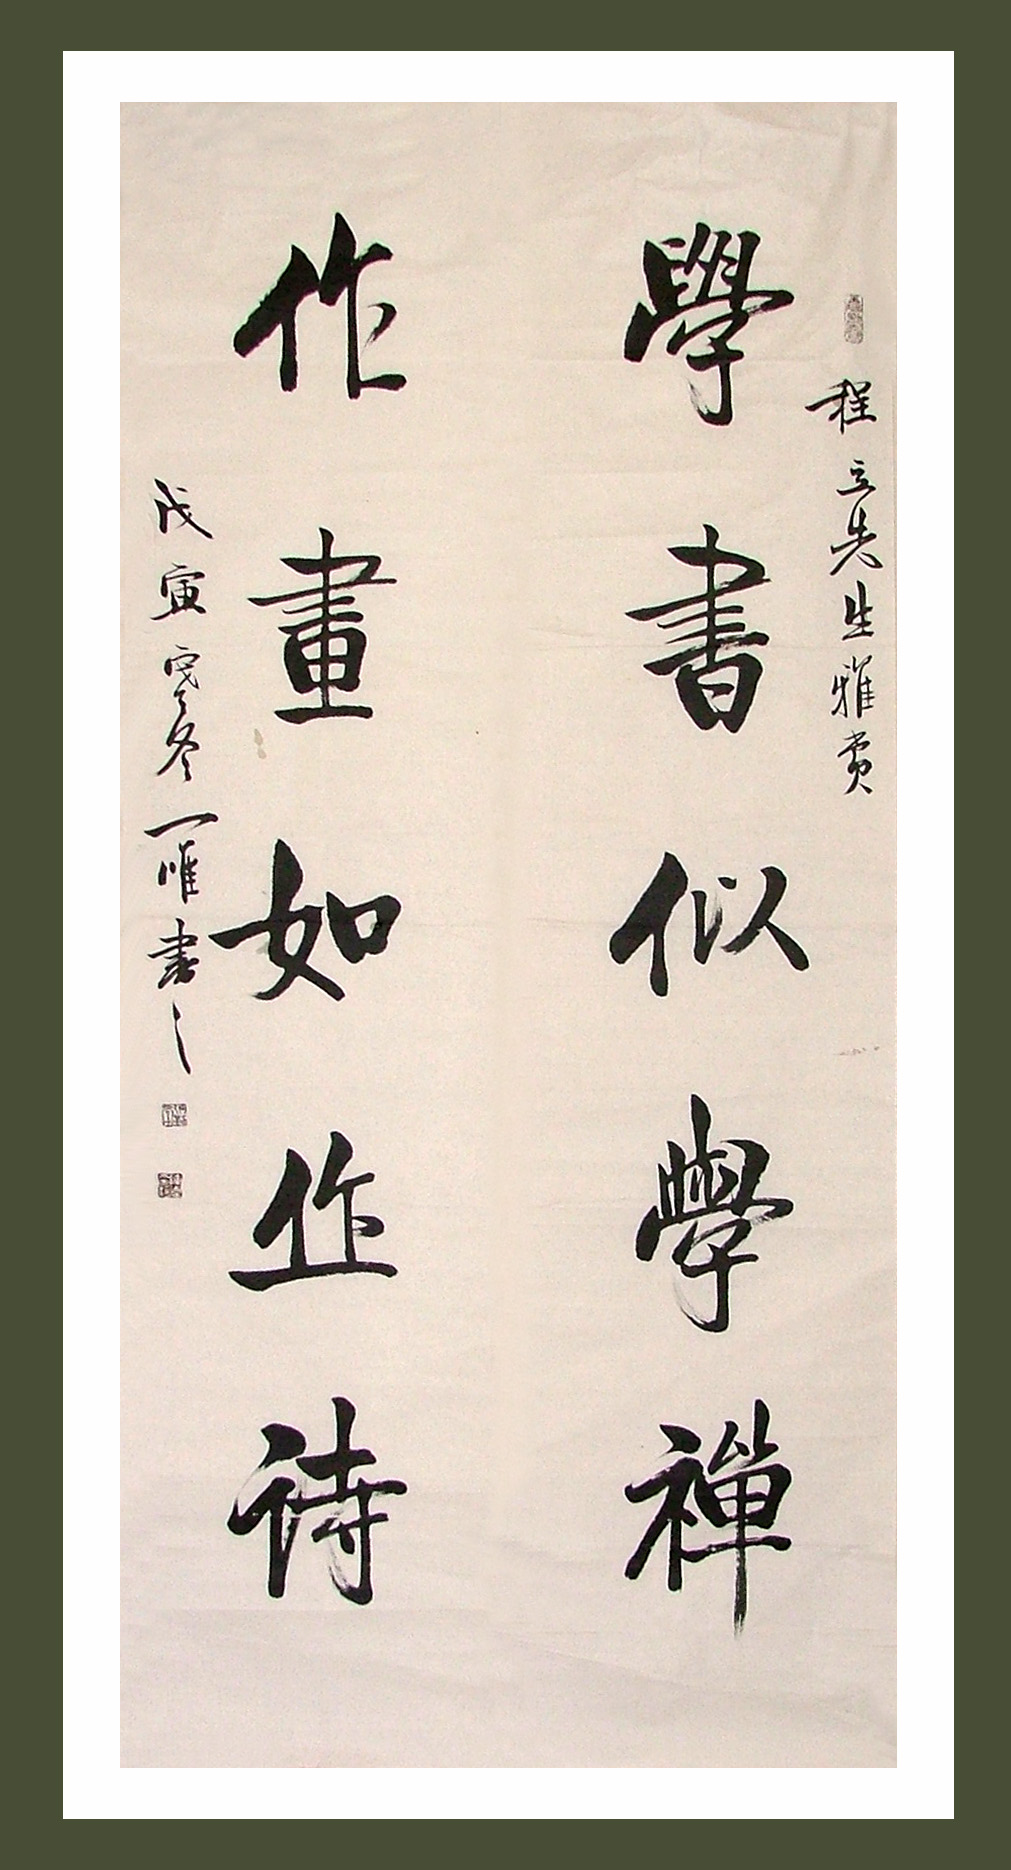 程立先生雅賞
學書似學禪
作畫如作詩
戊寅冬一唯書之